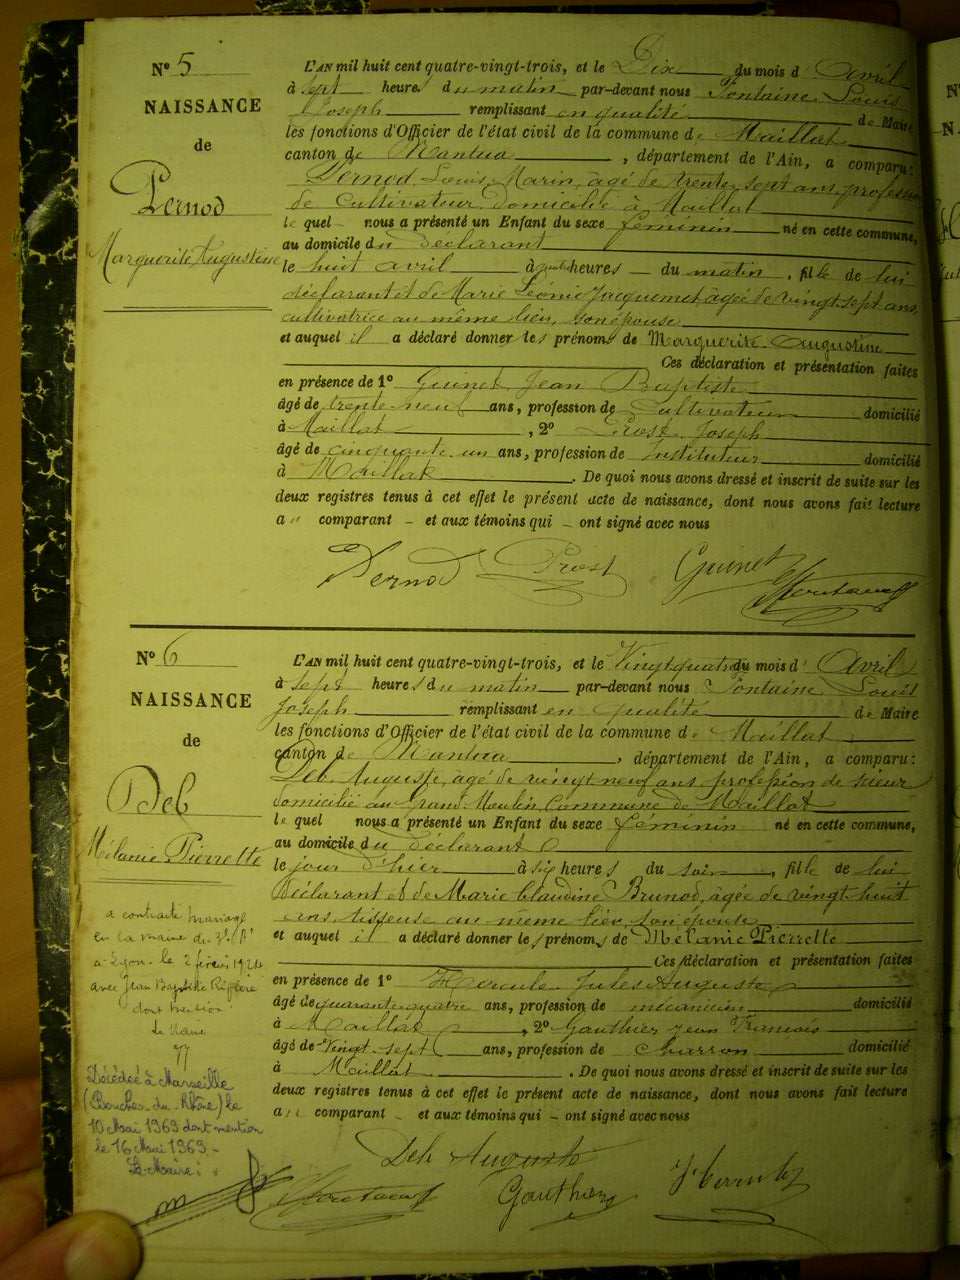 N° 5
NAISSANCE
de
Pernod
Marguerite Augustine
L'AN mil huit cent quatre-vingt-trois, et le Dix du mois d'Avril
à sept heures du matin par-devant nous Fontaine Louis
Joseph remplissant en qualité de Maire
les fonctions d'Officier de l'état civil de la commune de Maillat
canton de Nantua, département de l'Ain, a comparu:
Pernod Louis Marin, âgé de trente sept ans, profession
de Cultivateur domicilié à Maillat
le quel nous a présenté un Enfant du sexe féminin né en cette commune,
au domicile du déclarant
le huit avril à heures du matin, fille de lui
déclarant et de Marie Léonie Jacquemet, âgée de vingt sept ans,
cultivatrice au même lieu, son épouse
et auquel il a déclaré donner les prénoms de Marguerite Augustine
Ces déclaration et présentation faites
en présence de 1° Guinet Jean Baptiste
âgé de trente neuf ans, profession de Cultivateur domicilié
à Maillat, 2° Prost Joseph
âgé de cinquante un ans, profession de Instituteur domicilié
à Maillat. De quoi nous avons dressé et inscrit de suite sur les
deux registres tenus à cet effet le présent acte de naissance, dont nous avons fait lecture
au comparant et aux témoins qui ont signé avec nous
Pernod Prost Guinet Fontaine
N° 6
NAISSANCE
de
Deb
Mélanie Pierrette
L'AN mil huit cent quatre-vingt-trois, et le Vingt quatre du mois d'Avril
à sept heures du matin par-devant nous Fontaine Louis
Joseph remplissant en qualité de Maire
les fonctions d'Officier de l'état civil de la commune de Maillat
canton de Nantua, département de l'Ain, a comparu:
Deb Auguste, âgé de vingt neuf ans profession de scieur
domicilié au Grand Moulin Commune de Maillat
le quel nous a présenté un Enfant du sexe féminin né en cette commune,
au domicile du déclarant
le jour d'hier à six heures du soir, fille de lui
déclarant et de Marie Claudine Brunod, âgée de vingt huit
ans, tisseuse au même lieu, son épouse
et auquel il a déclaré donner les prénoms de Mélanie Pierrette
Ces déclaration et présentation faites
en présence de 1° Hercule Jules Auguste
âgé de quarante quatre ans, profession de mécanicien domicilié
à Maillat, 2° Gauthier Jean François
âgé de Vingt sept ans, profession de Charron domicilié
à Maillat. De quoi nous avons dressé et inscrit de suite sur les
deux registres tenus à cet effet le présent acte de naissance, dont nous avons fait lecture
au comparant et aux témoins qui ont signé avec nous
Deb Auguste
Fontaine Gauthier
a contracté mariage
en la mairie du 3e Art
à Lyon le 2 février 1924
avec Jean Baptiste
dont mention
Le Maire
Décédée à Marseille
(Bouches-du-Rhône) le
10 Mai 1969 dont mention
le 16 Mai 1969 -
Le Maire: